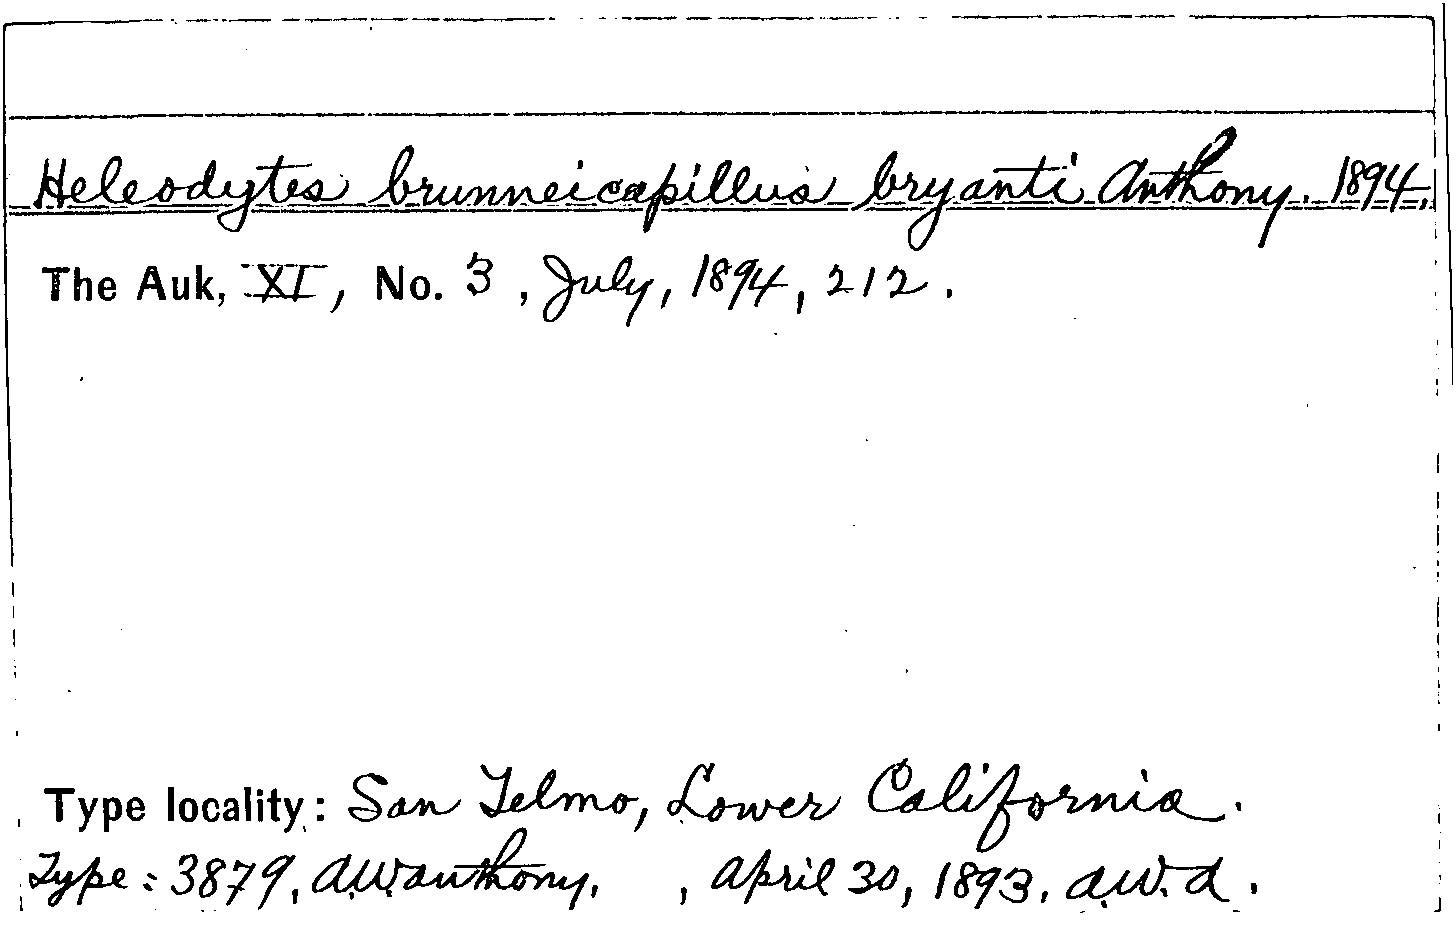 Heleodytes brunneicapillus bryanti Anthony. 1894.
The Auk, XI, No. 3, July, 1894, 212.
Type locality: San Telmo, Lower California.
Type: 3879, A.W. Anthony. , April 30, 1893. A.W.A.